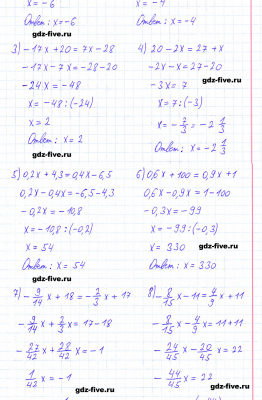 x = -6
x = -4
Ответ: x = -6
Ответ: x = -4
3) -17x + 20 = 7x - 28
-17x - 7x = -28 - 20
-24x = -48
x = -48 : (-24)
x = 2
Ответ: x = 2
4) 20 - 2x = 27 + x
gdz-five.ru
-2x - x = 27 - 20
-3x = 7
x = 7 : (-3)
x = -7/3 = -2 1/3
Ответ: x = -2 1/3
gdz-five.ru
5) 0,2x + 4,3 = 0,4x - 6,5
0,2x - 0,4x = -6,5 - 4,3
-0,2x = -10,8
x = -10,8 : (-0,2)
x = 54
Ответ: x = 54
6) 0,6x + 100 = 0,9x + 1
0,6x - 0,9x = 1 - 100
-0,3x = -99
x = -99 : (-0,3)
x = 330
gdz-five.ru
Ответ: x = 330
gdz-five.ru
7) -9/14 x + 18 = -2/3 x + 17
-9/14 x + 2/3 x = 17 - 18
-27/42 x + 28/42 x = -1
1/42 x = -1
gdz-five.ru
8) -8/15 x - 11 = 4/9 x + 11
gdz-five.ru
-8/15 x - 4/9 x = 11 + 11
-24/45 x - 20/45 x = 22
-44/45 x = 22
gdz-five.ru